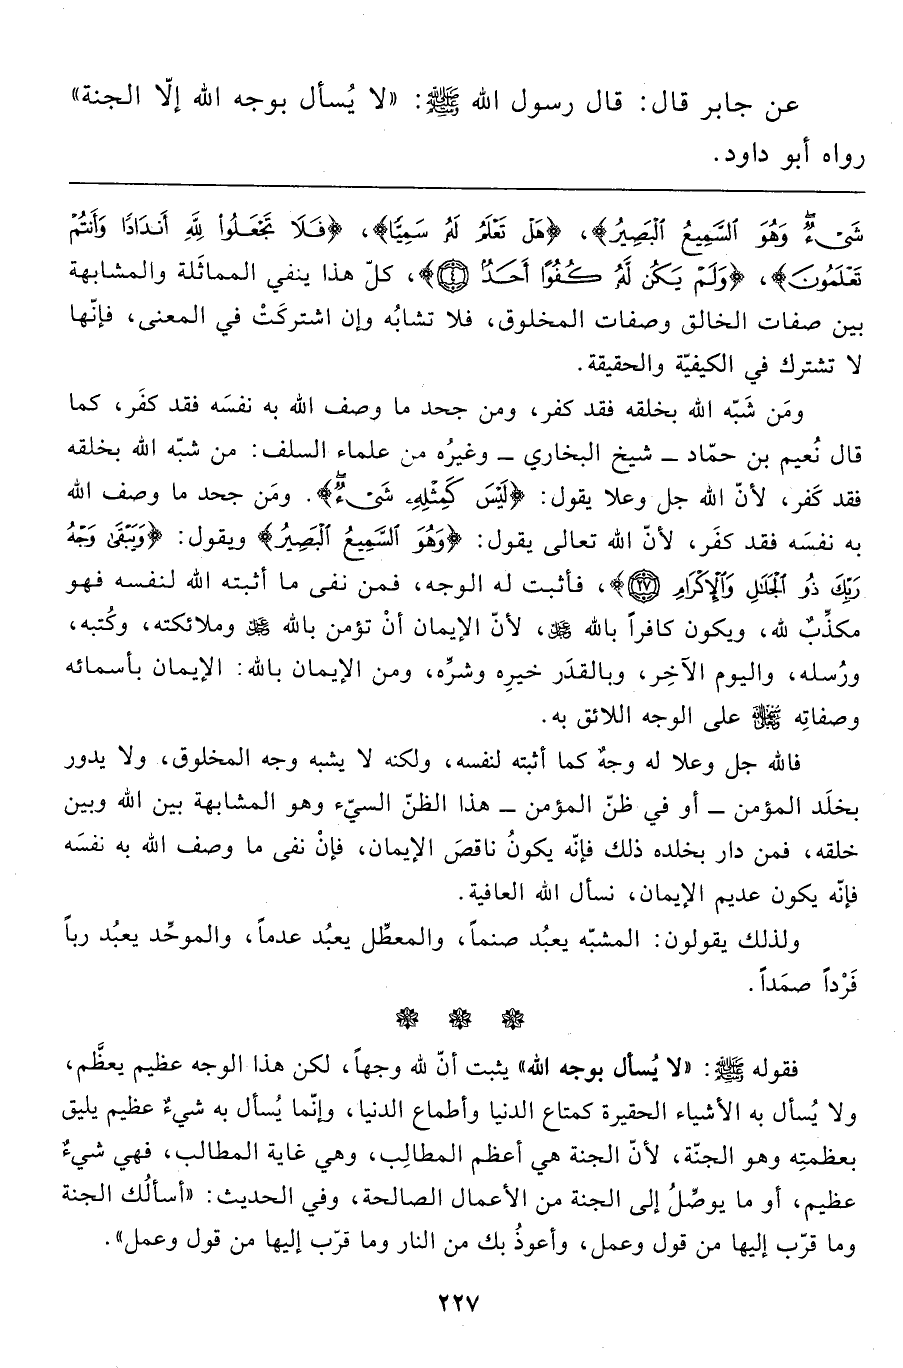 عن جابر قال: قال رسول الله ﷺ: «لا يُسأل بوجه الله إلّا الجنة»
رواه أبو داود.
شَيْءٌ وَهُوَ السَّمِيعُ الْبَصِيرُ﴾، ﴿هَلْ تَعْلَمُ لَهُ سَمِيًّا﴾، ﴿فَلَا تَجْعَلُوا لِلَّهِ أَندَادًا وَأَنتُمْ
تَعْلَمُونَ﴾، ﴿وَلَمْ يَكُن لَّهُ كُفُوًا أَحَدٌ ٤﴾، كلّ هذا ينفي المماثَلة والمشابهة
بين صفات الخالق وصفات المخلوق، فلا تشابُه وإن اشتركَتْ في المعنى، فإنّها
لا تشترك في الكيفيّة والحقيقة.
ومَن شَبّه الله بخلقه فقد كفر، ومن جحد ما وصف الله به نفسَه فقد كفَر، كما
قال نُعيم بن حمّاد ــ شيخ البخاري ــ وغيرُه من علماء السلف: من شبّه الله بخلقه
فقد كَفر، لأنّ الله جل وعلا يقول: ﴿لَيْسَ كَمِثْلِهِ شَيْءٌ﴾. ومَن جحد ما وصف الله
به نفسَه فقد كفَر، لأنّ الله تعالى يقول: ﴿وَهُوَ السَّمِيعُ الْبَصِيرُ﴾ ويقول: ﴿وَيَبْقَىٰ وَجْهُ
رَبِّكَ ذُو الْجَلَالِ وَالْإِكْرَامِ ٢٧﴾، فأثبت له الوجه، فمن نفى ما أثبته الله لنفسه فهو
مكذِّبٌ لله، ويكون كافراً بالله ﷻ، لأنّ الإيمان أنْ تؤمن بالله ﷻ وملائكته، وكُتبه،
ورُسله، واليوم الآخِر، وبالقدَر خيرِه وشرِّه، ومن الإيمان بالله: الإيمان بأسمائه
وصفاتِه سبحانه وتعالى على الوجه اللائق به.
فالله جل وعلا له وجهٌ كما أثبته لنفسه، ولكنه لا يشبه وجه المخلوق، ولا يدور
بخلَد المؤمن ــ أو في ظنّ المؤمن ــ هذا الظنّ السيّء وهو المشابهة بين الله وبين
خلقه، فمن دار بخلده ذلك فإنّه يكونُ ناقصَ الإيمان، فإنْ نفى ما وصف الله به نفسَه
فإنّه يكون عديم الإيمان، نسأل الله العافية.
ولذلك يقولون: المشبّه يعبُد صنماً، والمعطِّل يعبُد عدماً، والموحِّد يعبُد رباً
فَرْداً صمَداً.
فقوله ﷺ: «لا يُسأل بوجه الله» يثبت أنّ لله وجهاً، لكن هذا الوجه عظيم يعظَّم،
ولا يُسأل به الأشياء الحقيرة كمتاع الدنيا وأطماع الدنيا، وإنّما يُسأل به شيءٌ عظيم يليق
بعظمتِه وهو الجنّة، لأنّ الجنة هي أعظم المطالِب، وهي غاية المطالب، فهي شيءٌ
عظيم، أو ما يوصِّلُ إلى الجنة من الأعمال الصالحة، وفي الحديث: «أسألُك الجنة
وما قرّب إليها من قول وعمل، وأعوذُ بك من النار وما قرّب إليها من قول وعمل».
٢٢٧